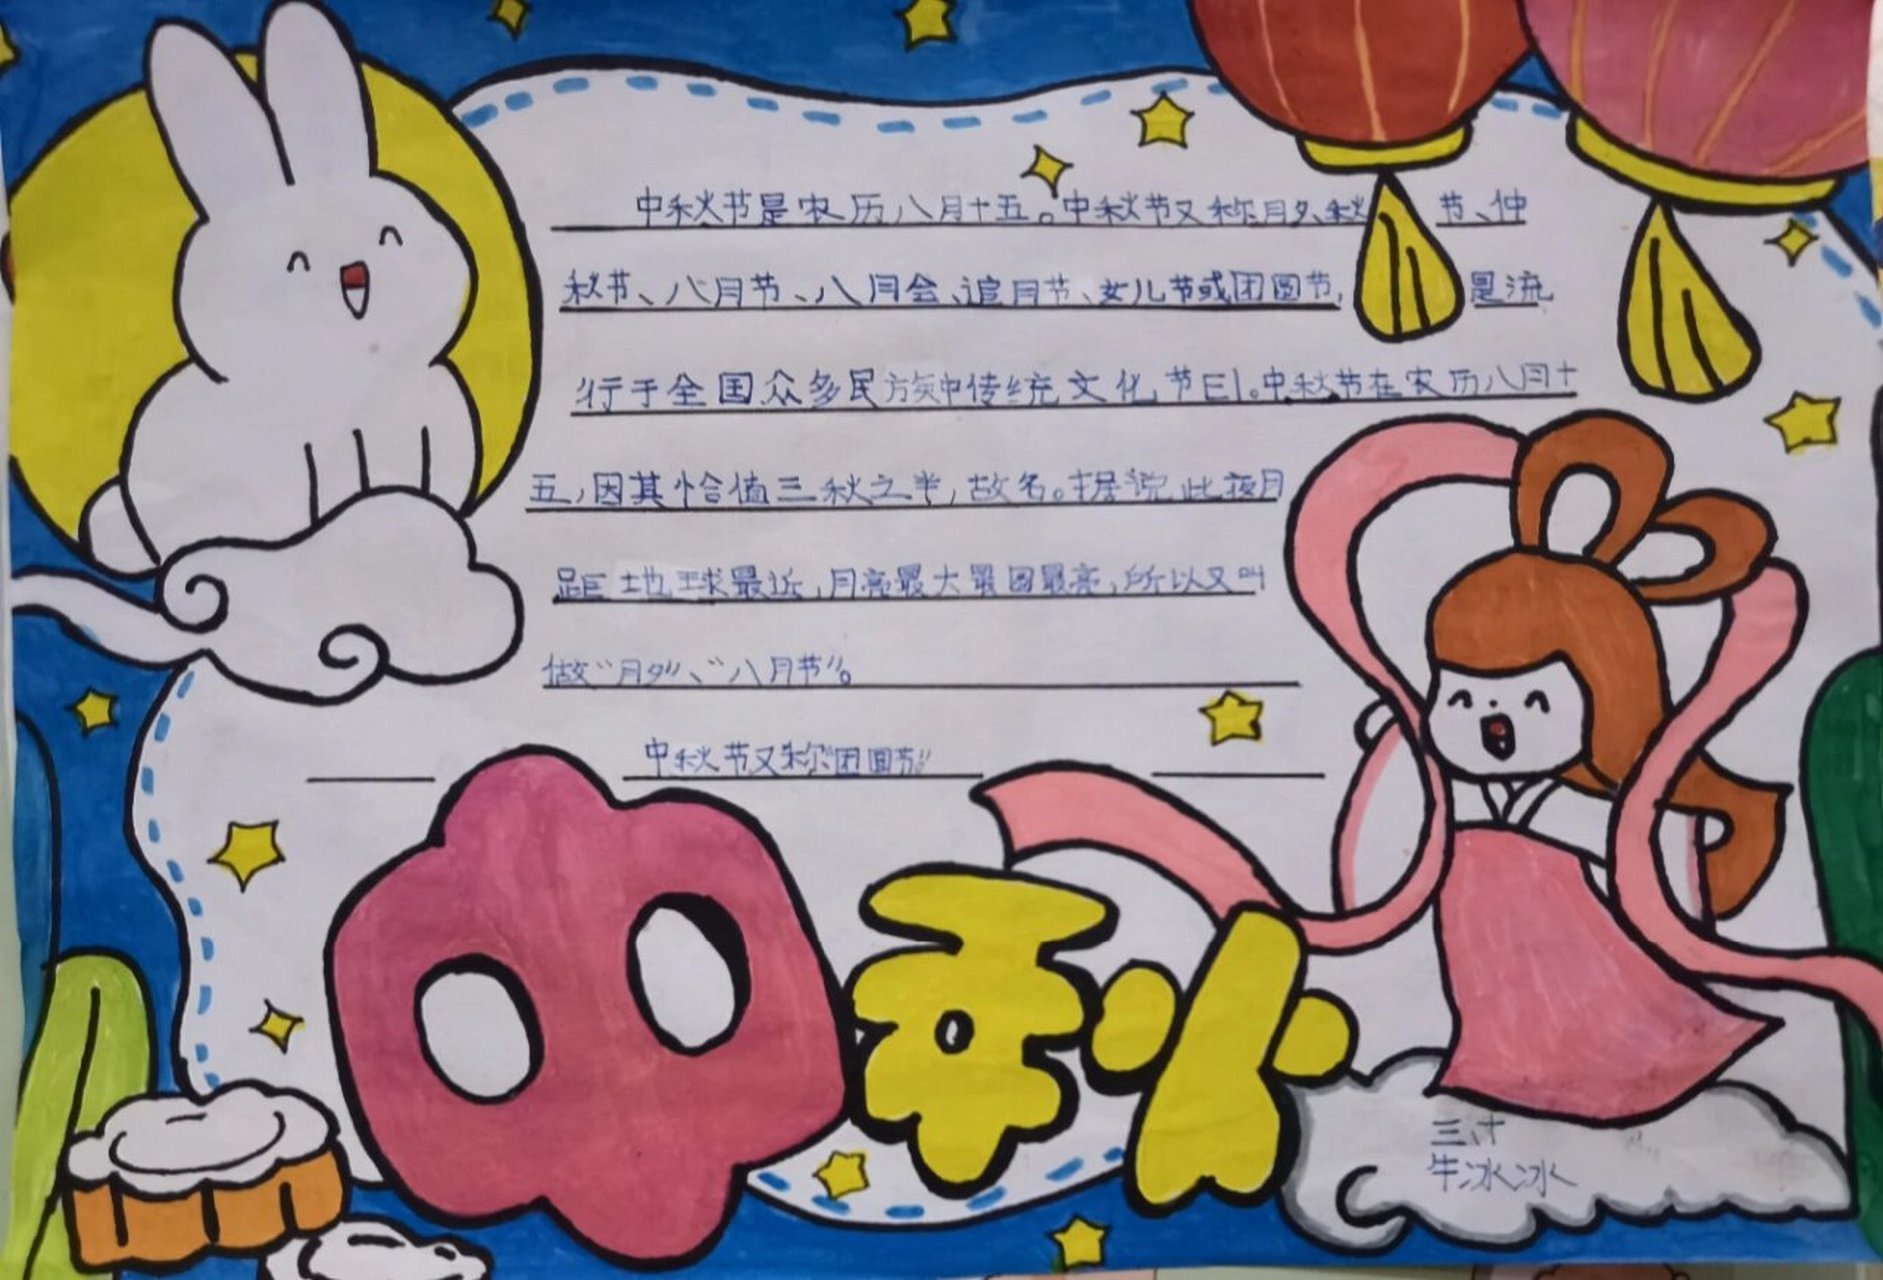 中秋节是农历八月十五。中秋节又称月夕、秋节、仲
秋节、八月节、八月会、追月节、女儿节或团圆节,是流
行于全国众多民族中传统文化节日。中秋节在农历八月十
五,因其恰值三秋之半,故名。据说此夜月
距地球最近,月亮最大最圆最亮,所以又叫
做“月夕”、“八月节”。
中秋节又称“团圆节”
中秋
三、十
牛冰冰